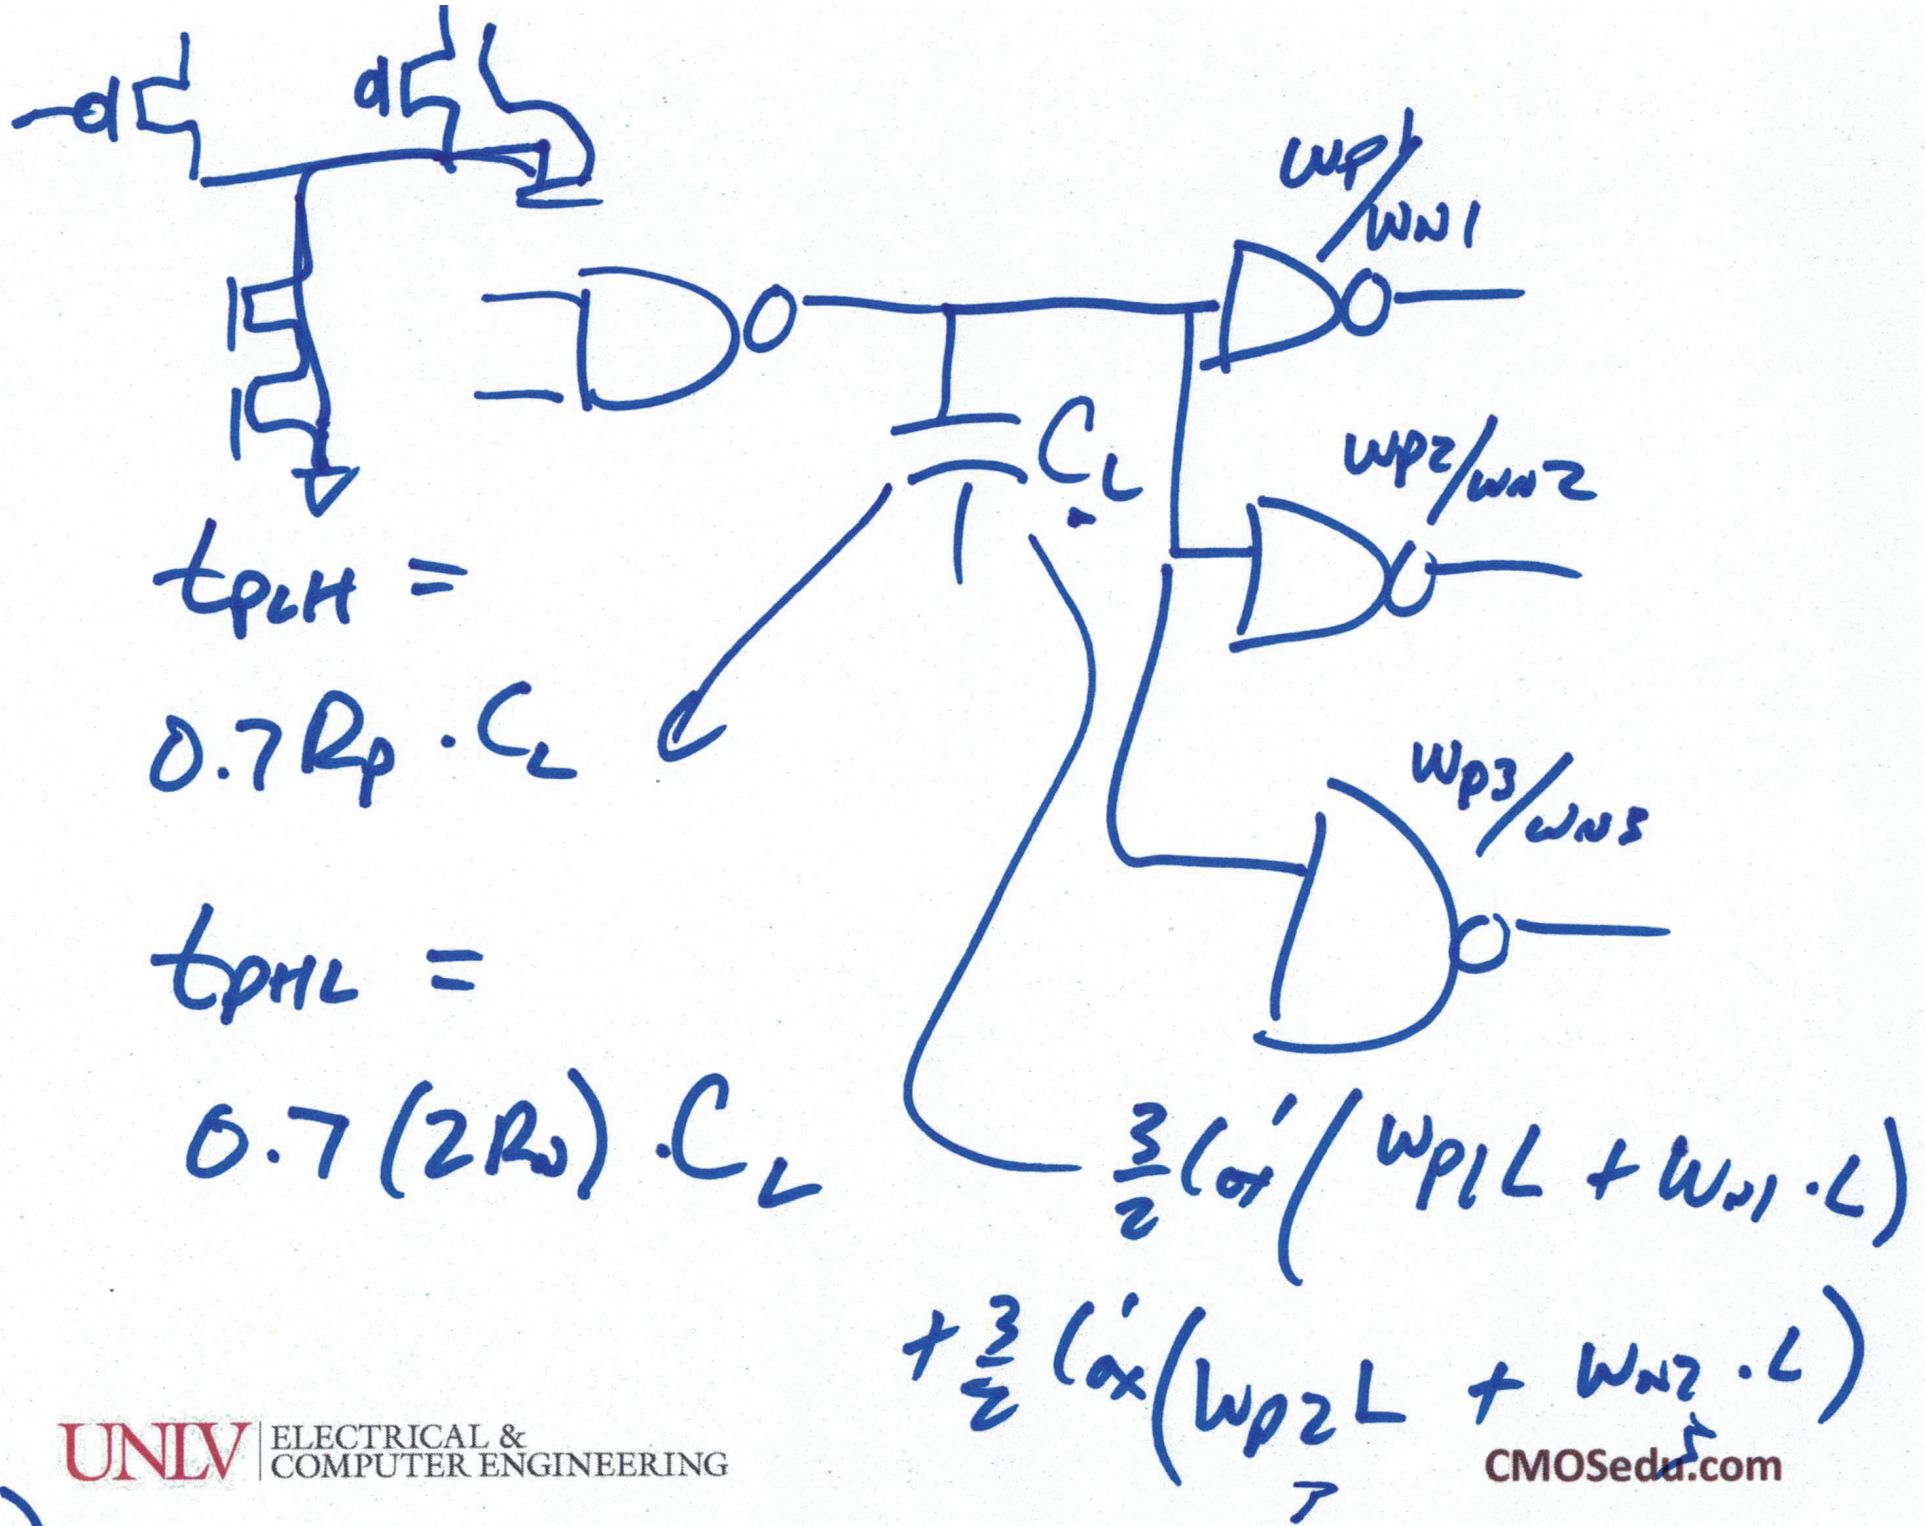 WP1/WN1
CL
WP2/WN2
tPLH =
0.7 RP · CL
WP3/WN3
tPHL =
0.7 (2RN) · CL
3/2 Cox' ( WP1 L + WN1 · L )
+ 3/2 Cox' ( WP2 L + WN2 · L )
3
UNLV ELECTRICAL &
COMPUTER ENGINEERING
CMOSedu.com